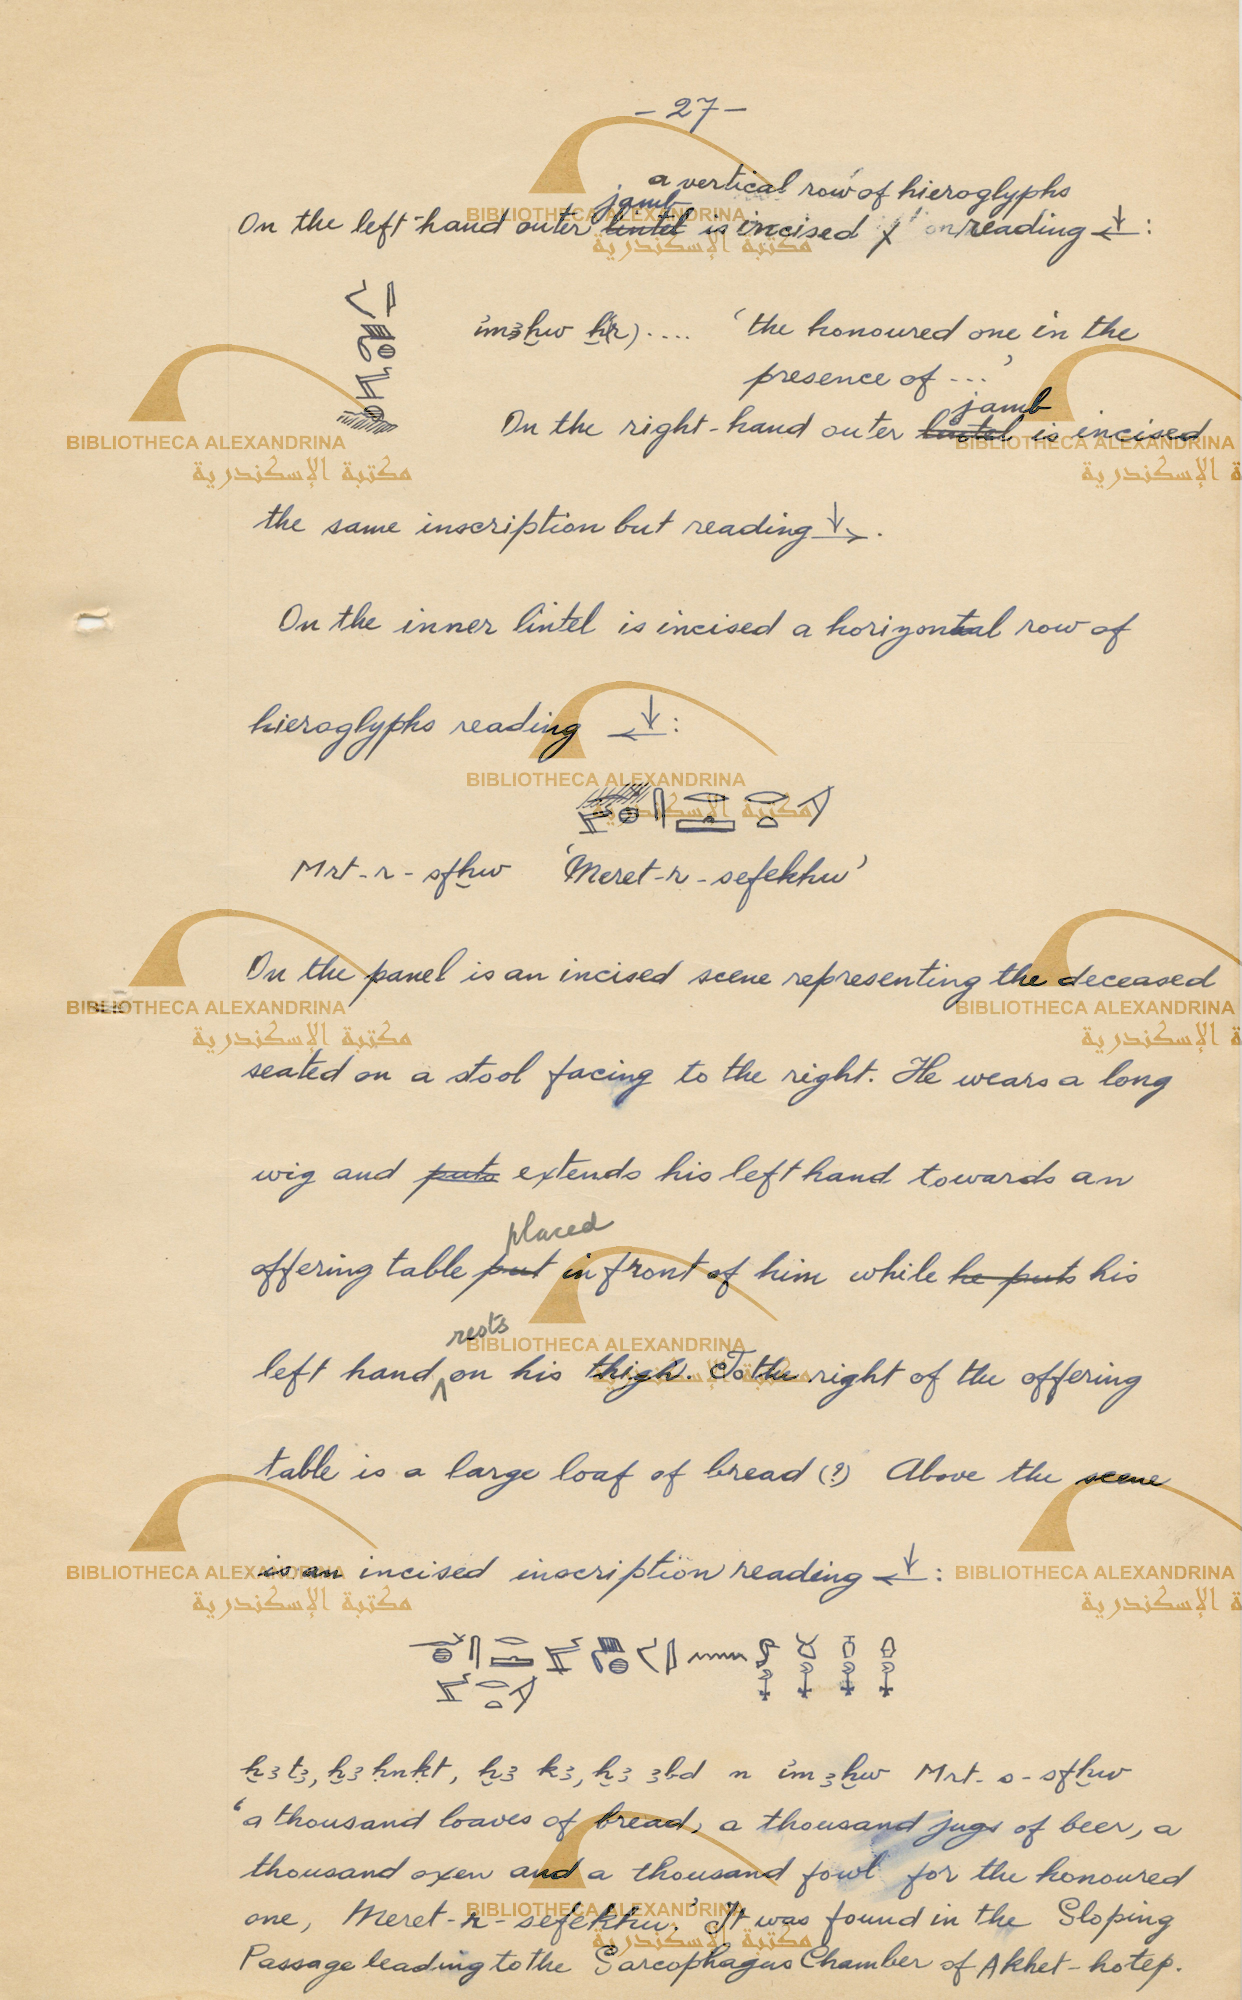 - 27 -
a vertical row of hieroglyphs
jamb
On the left-hand outer lintel is incised reading ←↓ :
ỉmꜣḫw ḫ(r) .... ‘the honoured one in the
presence of ...’
jamb
On the right-hand outer lintel is incised
the same inscription but reading ↓→ .
On the inner lintel is incised a horizontal row of
hieroglyphs reading ←↓ :
Mrt-r-sfḫw ‘Meret-r-sefekhw’
On the panel is an incised scene representing the deceased
seated on a stool facing to the right. He wears a long
wig and puts extends his left hand towards an
placed
offering table put in front of him while he puts his
rests
left hand ^ on his thigh. To the right of the offering
table is a large loaf of bread (?) Above the scene
is an incised inscription reading ←↓ :
ḫꜣ tꜣ, ḫꜣ ḥnḳt, ḫꜣ kꜣ, ḫꜣ ꜣbd n ỉmꜣḫw Mrt-s-sfḫw
‘a thousand loaves of bread, a thousand jugs of beer, a
thousand oxen and a thousand fowl for the honoured
one, Meret-r-sefekhw.’ It was found in the Sloping
Passage leading to the Sarcophagus Chamber of Akhet-hotep.
BIBLIOTHECA ALEXANDRINA
مكتبة الإسكندرية